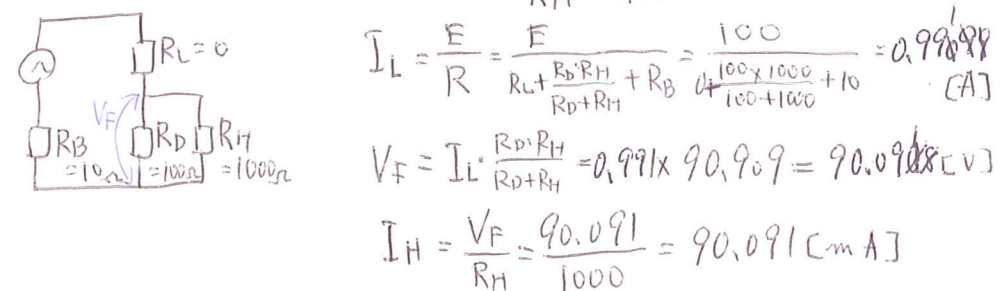 R_L=0
V_F
R_B
=10Ω
R_D
=100Ω
R_H
=1000Ω
I_L = E/R = E/(R_L+(R_D·R_H)/(R_D+R_H)+R_B) = 100/(0+(100×1000)/(100+1000)+10) = 0.991 [A]
V_F = I_L·(R_D·R_H)/(R_D+R_H) = 0.991×90.909 = 90.091 [V]
I_H = V_F/R_H = 90.091/1000 = 90.091 [mA]